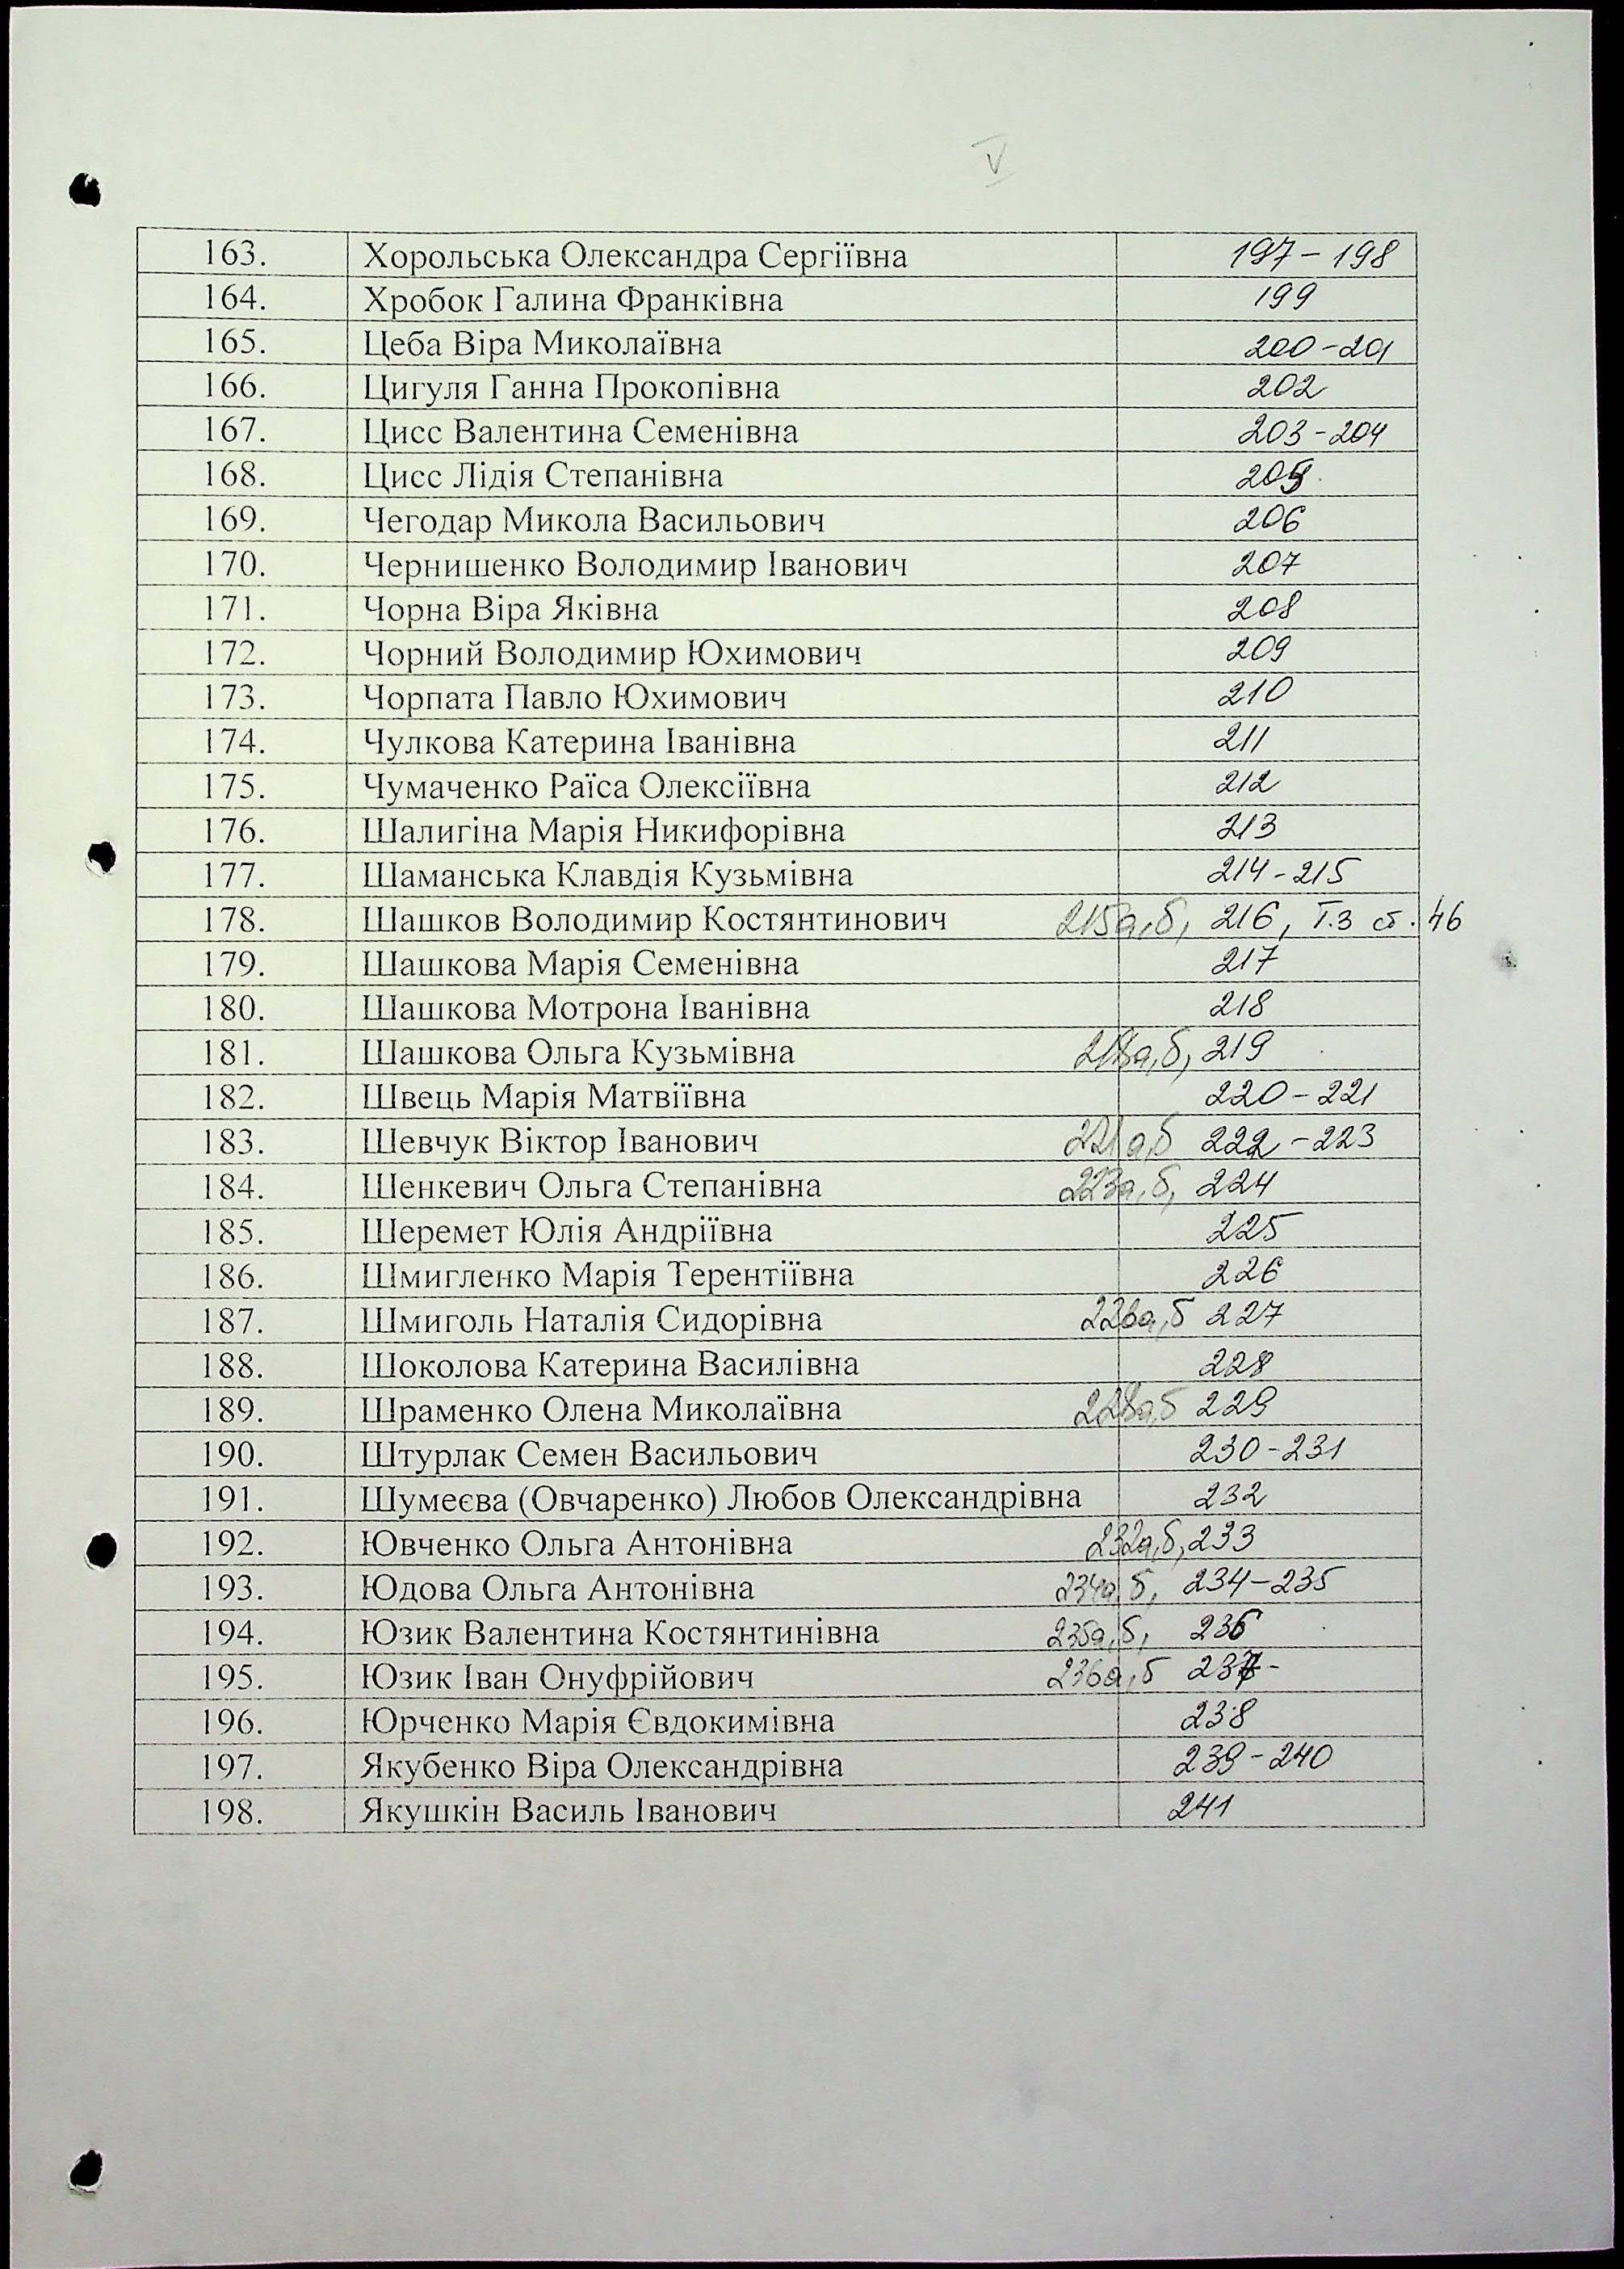 V
163. Хорольська Олександра Сергіївна 197-198
164. Хробок Галина Франківна 199
165. Цеба Віра Миколаївна 200-201
166. Цигуля Ганна Прокопівна 202
167. Цисс Валентина Семенівна 203-204
168. Цисс Лідія Степанівна 205
169. Чегодар Микола Васильович 206
170. Чернишенко Володимир Іванович 207
171. Чорна Віра Яківна 208
172. Чорний Володимир Юхимович 209
173. Чорпата Павло Юхимович 210
174. Чулкова Катерина Іванівна 211
175. Чумаченко Раїса Олексіївна 212
176. Шалигіна Марія Никифорівна 213
177. Шаманська Клавдія Кузьмівна 214-215
178. Шашков Володимир Костянтинович 215а,б, 216, Т.3 ст. 46
179. Шашкова Марія Семенівна 217
180. Шашкова Мотрона Іванівна 218
181. Шашкова Ольга Кузьмівна 218а,б, 219
182. Швець Марія Матвіївна 220-221
183. Шевчук Віктор Іванович 221а,б 222-223
184. Шенкевич Ольга Степанівна 223а,б, 224
185. Шеремет Юлія Андріївна 225
186. Шмигленко Марія Терентіївна 226
187. Шмиголь Наталія Сидорівна 226а,б 227
188. Шоколова Катерина Василівна 228
189. Шраменко Олена Миколаївна 228а,б 229
190. Штурлак Семен Васильович 230-231
191. Шумеєва (Овчаренко) Любов Олександрівна 232
192. Ювченко Ольга Антонівна 232а,б, 233
193. Юдова Ольга Антонівна 234а,б, 234-235
194. Юзик Валентина Костянтинівна 235а,б, 236
195. Юзик Іван Онуфрійович 236а,б 237-
196. Юрченко Марія Євдокимівна 238
197. Якубенко Віра Олександрівна 239-240
198. Якушкін Василь Іванович 241